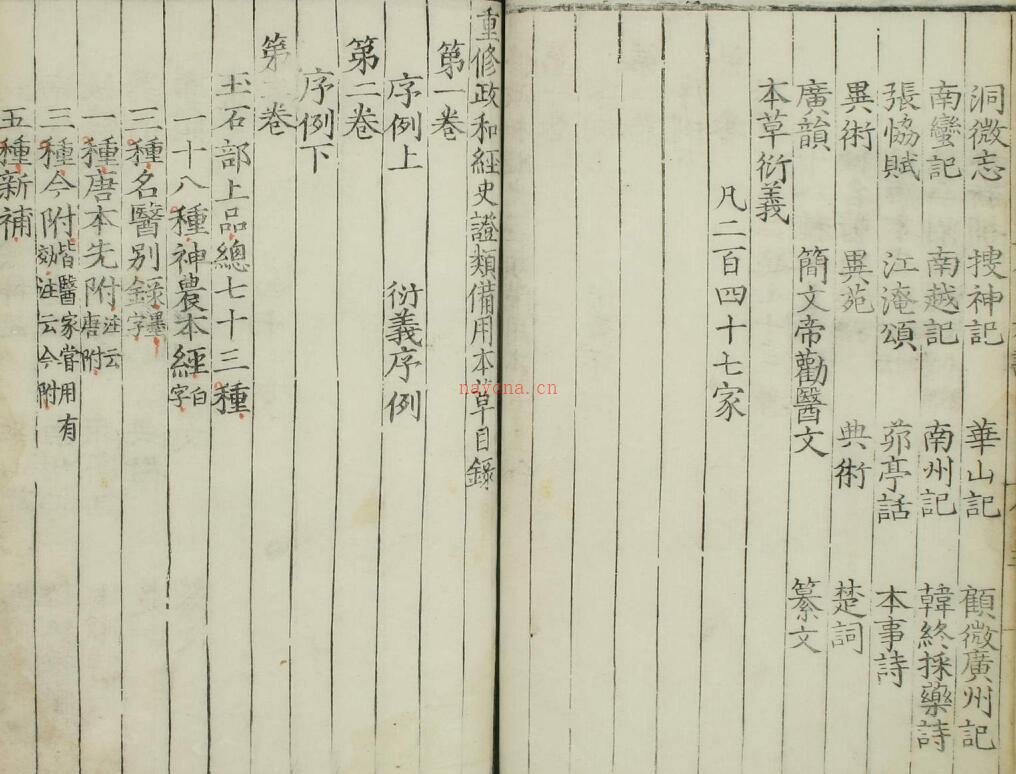 洞微志 搜神記 華山記 顧微廣州記
南蠻記 南越記 南州記 韓終採藥詩
張恊賦 江淹頌 茆亭話 本事詩
異術 異苑 典術 楚詞
廣韻 簡文帝勸醫文 纂文
本草衍義
凡二百四十七家
重修政和經史證類備用本草目錄
第一卷
序例上 衍義序例
第二卷
序例下
第 卷
玉石部上品總七十三種
一十八種神農本經白字
三種名醫別錄墨字
一種唐本先附注云唐附
三種今附皆醫家嘗用有効注云今附
五種新補
nayona.cn